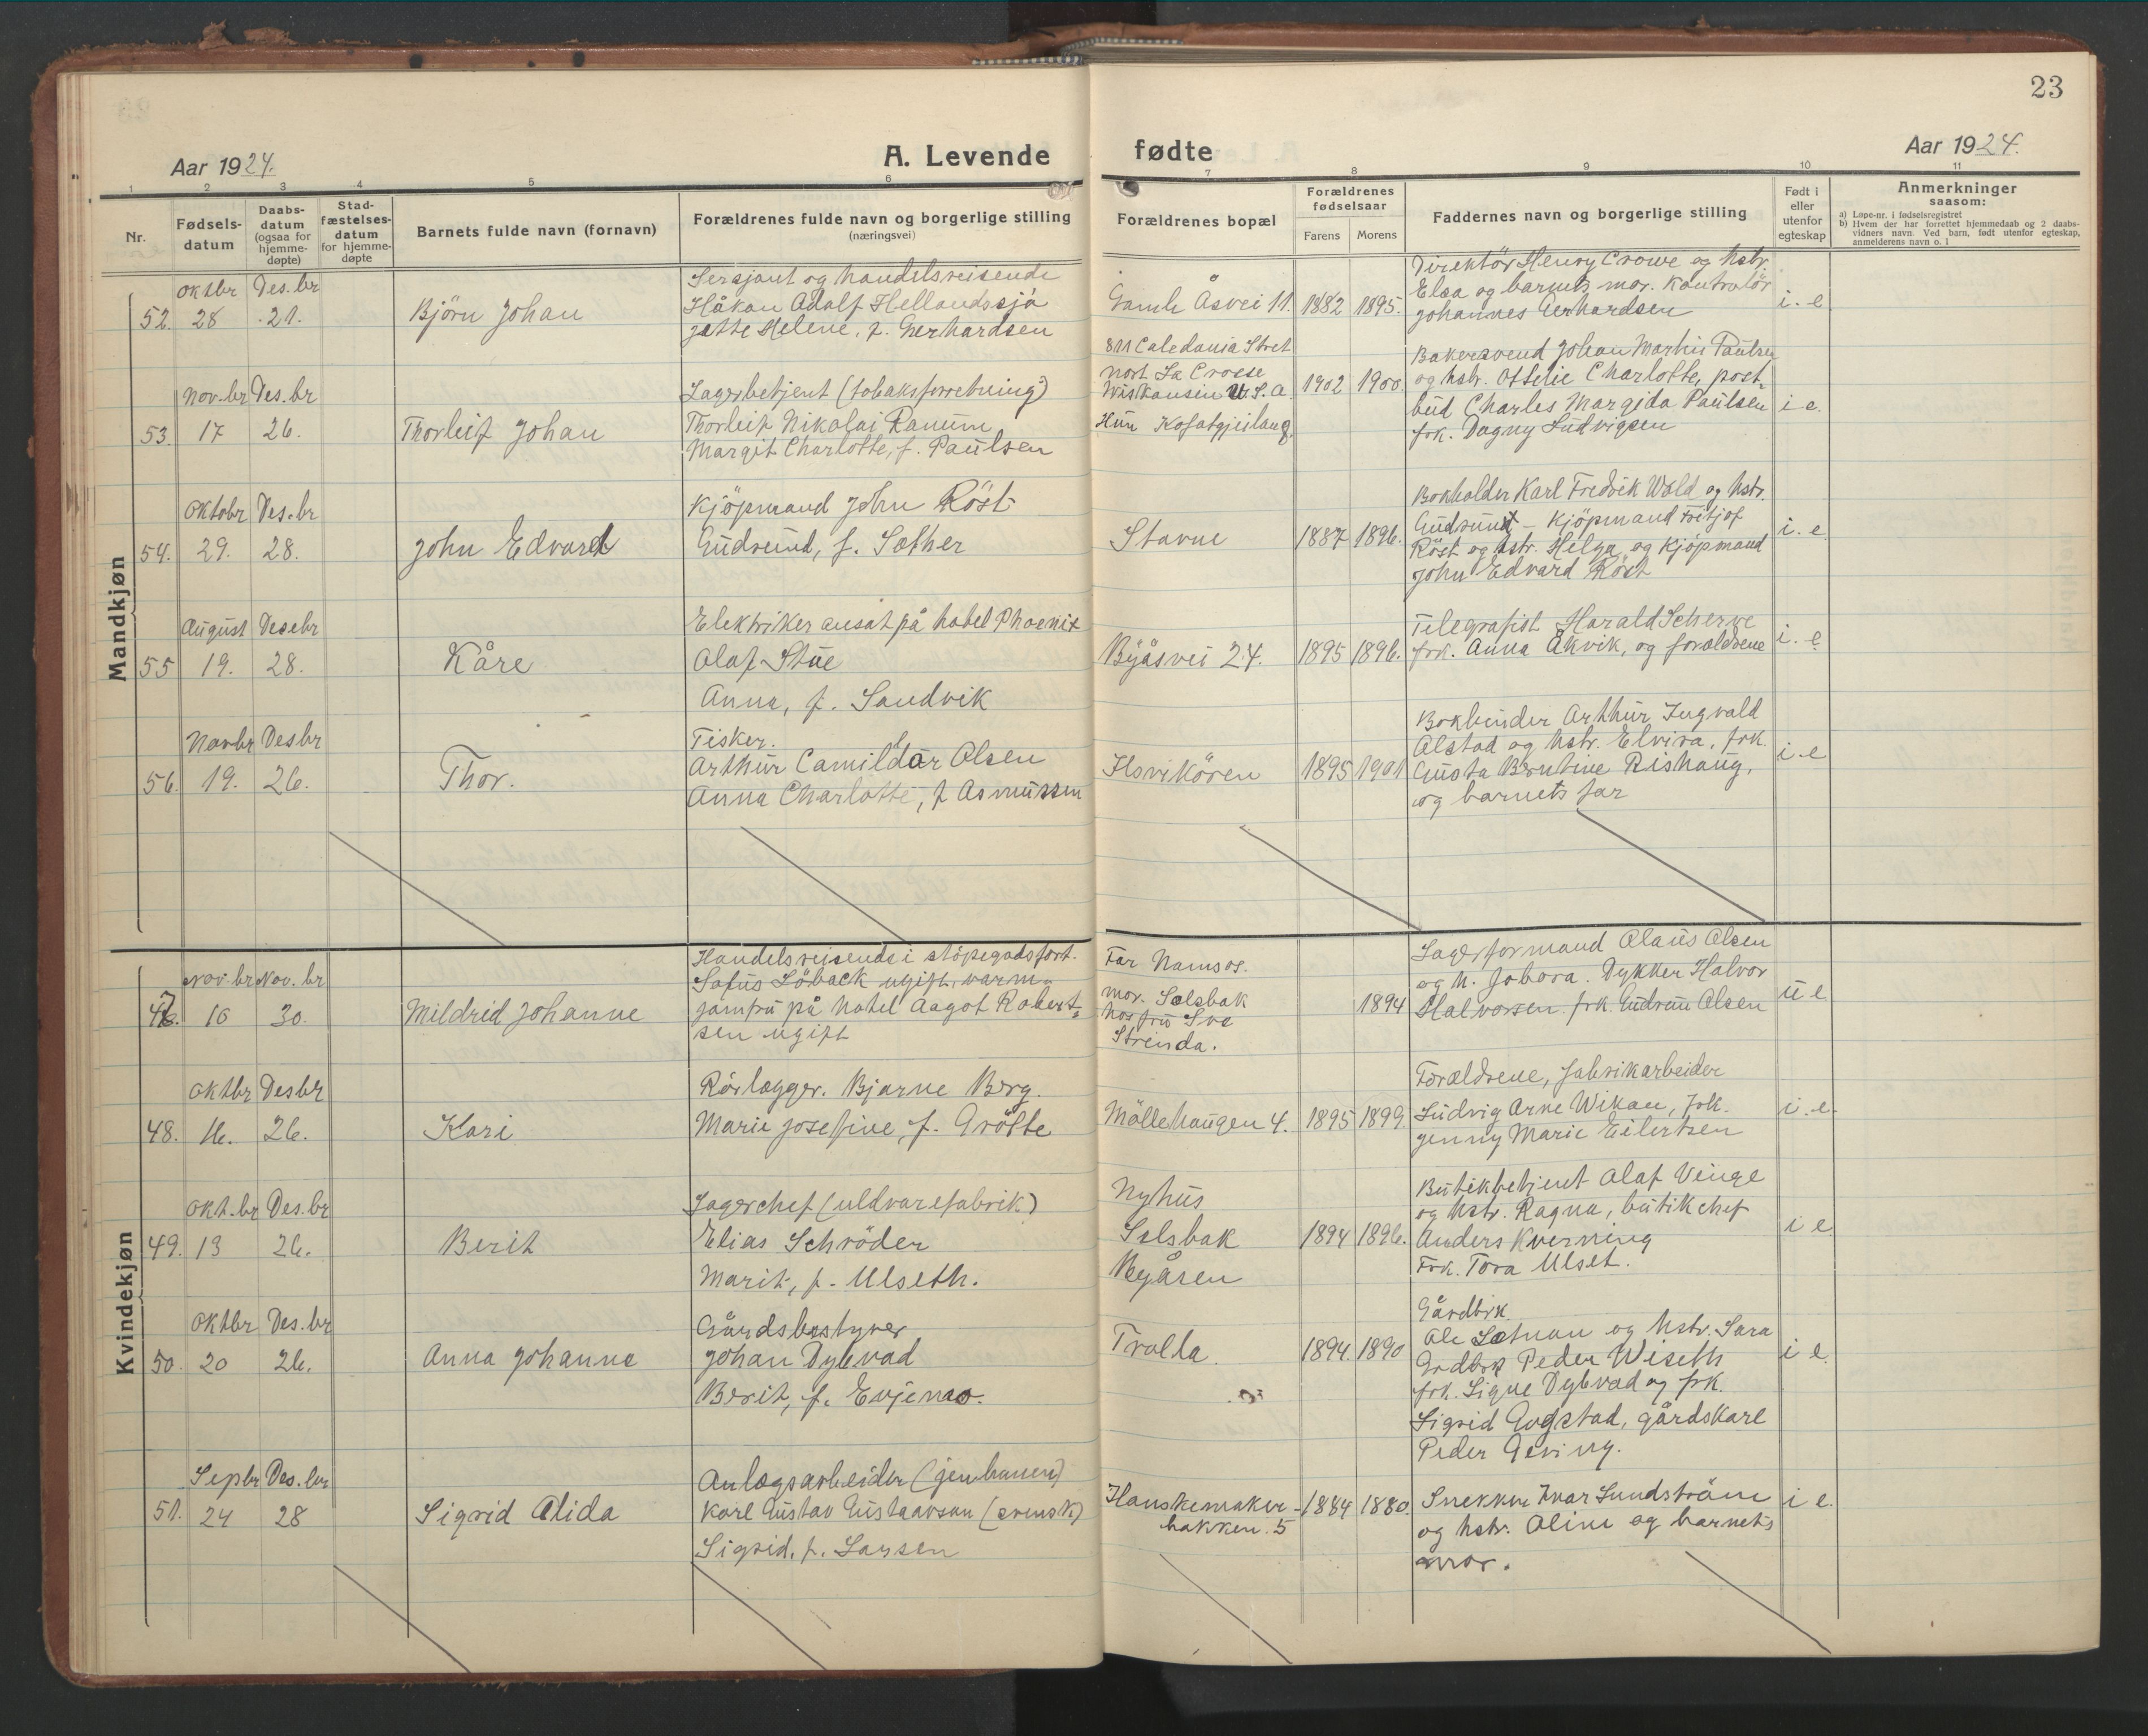 23
Aar 1924.
A. Levende
fødte
Aar 1924.
1 2 3 4 5 6 7 8 9 10 11
Nr.
Fødsels-
datum
Daabs-
datum
(ogsaa for
hjemme-
døpte)
Stad-
fæstelses-
datum
for hjemme-
døpte
Barnets fulde navn (fornavn)
Forældrenes fulde navn og borgerlige stilling
(næringsvei)
Forældrenes bopæl
Forældrenes
fødselsaar
Farens Morens
Faddernes navn og borgerlige stilling
Født i
eller
utenfor
egteskap
Anmerkninger
saasom:
a) Løpe-nr. i fødselsregistret
b) Hvem der har forrettet hjemmedaab og 2 daabs-
vidners navn. Ved barn, født utenfor egteskap,
anmelderens navn o. l
Mandkjøn
52. Oktbr 28 Des.br 21.
Björn Johan
Sersjant og handelsreisende
Håkan Adolf Hellandssjå
Jette Helene, f. Gerhardsen
Gamle Åsvei 11.
1882 1895.
Direktör Henry Crowe og hstr.
Elsa og barnets mor. Kontrolör
Johannes Gerhardsen
i. e
53. Nov.br 17 Des.br 26.
Thorleif Johan
Lagerbetjent (tobaksforretning)
Thorleif Nikolai Ranum
Margit Charlotte, f. Paulsen
811 Caledania Stret
nort La Crosse
Wiskansin U.S.A.
Hun
1902 1900.
Bakersvend Johan Martin Paulsen
og hstr. Ottelie Charlotte, post-
bud Charles Margido Paulsen
frk. Dagny Ludvigsen
i e.
54. Oktobr 29. Des.br 28.
John Edvard
Kjöpmand John Röst
Gudrund, f. Sæther
Stavne
1887 1896.
Bokholder Karl Fredrik Wold og hstr.
Gudrun – Kjöpmand Fritjof
Röst og hstr. Helga og Kjöpmand
John Edvard Röst
i. e
55 August 19. Desebr 28.
Kåre
Elektriker ansat på hotel Phoenix
Olaf Stue
Anna, f. Sandvik
Byåsvei 24.
1895 1896.
Telegrafist Harald Scherve
frk. Anna Åkvik, og forældrene
i. e
56. Novbr 19. Desbr 26.
Thor.
Fisker.
Arthur Camildar Olsen
Anna Charlotte, f Asmussen
Ilsvikören
1895 1901
Bokbinder Arthur Ingvald
Alstad og hstr. Elvira, frk.
Gusta Berntine Rishaug,
og barnets far
i - e
Kvindekjøn
47. Nov.br 16 Nov.br 30.
Mildrid Johanne
Handelsreisende i stöpegodsfort.
Sofus Löback ugift, varm-
jomfru på hotel Aagot Robert-
sen ugift
Far Namsos.
mor. Selsbak
hos fru Sve
Strinda.
1894
Lagerformand Olaus Olsen
og h. Jobora. Dykker Halvor
Halvorsen. frk. Gudrun Olsen
u e
48. Oktbr 16. Desbr 26.
Kari
Rörlægger. Bjarne Berg.
Marie Josefine, f. Grötte
Möllehaugen 4.
1895 1899.
Forældrene, fabrikarbeider
Ludvig Arne Wikan, frk.
Jenny Marie Eilertsen
i. e.
49. Okt.br 13 Des.br 26.
Berit
Lagerchef (uldvarefabrik)
Elias Schröder
Marit, f. Ulseth.
Nyhus
Selsbak
Byåsen
1894 1896.
Butikbetjent Olaf Vinge
og hstr. Ragna, butikchef
Anders Kverning
Frk. Tora Ulset.
i e.
50. Oktbr 20 Des.br 26.
Anna Johanne
Gårdsbestyrer
Johan Dybvad
Berit, f. Evjemo.
Trolla.
1894. 1890
Gårdbrk.
Ole Sætnan og hstr. Sara
Grdbrk Peder Weseth
frk. Signe Dybvad og frk.
Sigrid Gogstad, gårdskarl
Peder Geving.
i e.
51. Sepbr 24 Des.br 28
Sigrid Alida
Anlægsarbeider (jernbanen)
Karl Gustav Gustaavson (svensk)
Sigrid, f. Larsen
Hanskemaker-
bakken. 5
1884 1880.
Snekker Ivar Lundström
og hstr. Oline og barnets
mor.
i e.